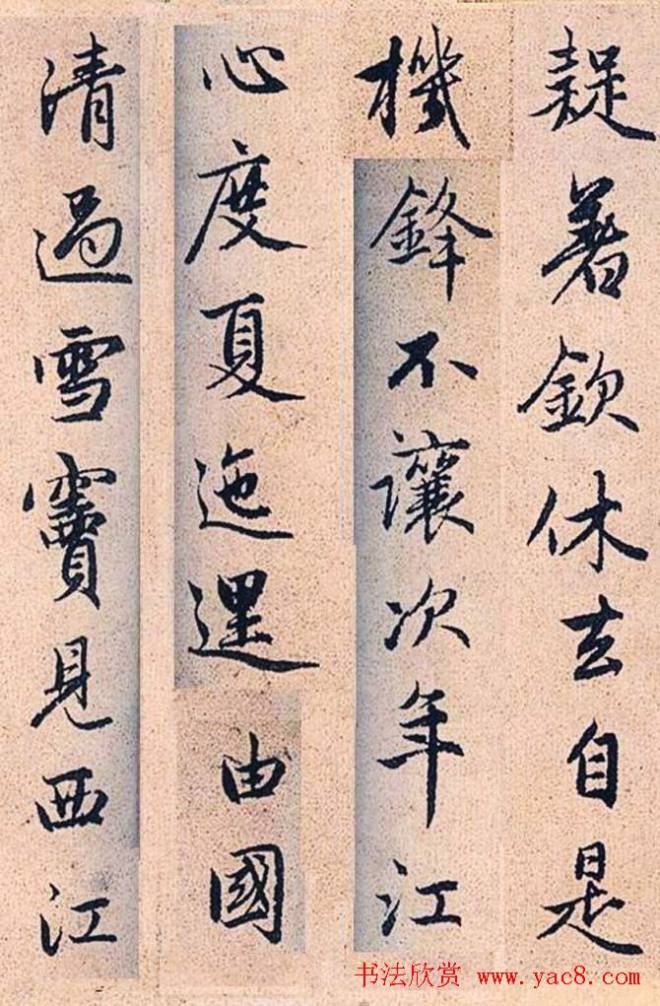 疑著欽休去自是
機鋒不讓次年江
心度夏迤邐由國
清過雪竇見西江
书法欣赏 www.yac8.com